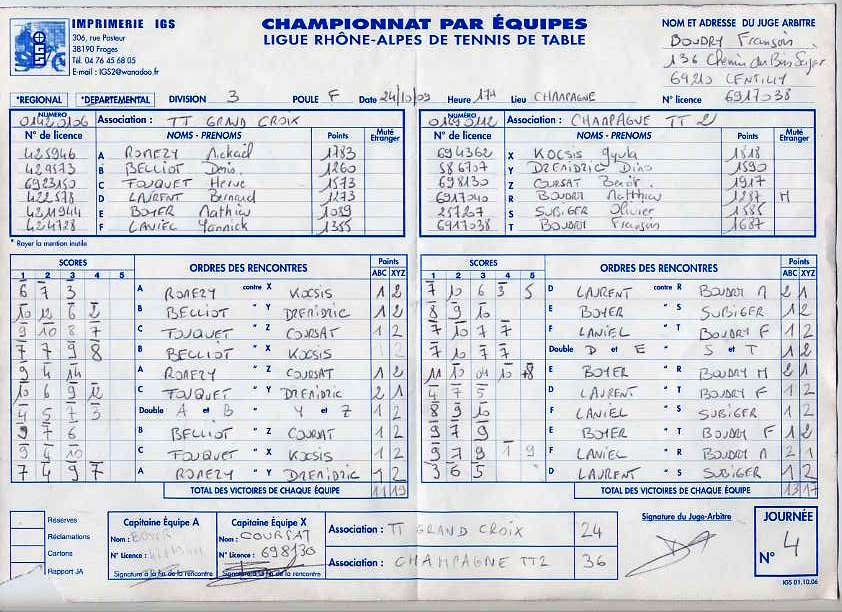 IMPRIMERIE IGS
306, rue Pasteur
38190 Froges
Tél. 04 76 45 68 05
E-mail : IGS2@wanadoo.fr
CHAMPIONNAT PAR ÉQUIPES
LIGUE RHÔNE-ALPES DE TENNIS DE TABLE
NOM ET ADRESSE DU JUGE ARBITRE
BOUDRY François
136 Chemin du
69210 LENTILLY
N° licence 6917038
*REGIONAL *DEPARTEMENTAL DIVISION 3 POULE F Date 24/10/09 Heure 17H Lieu CHAMPAGNE
NUMÉRO 01420106 Association : TT GRAND CROIX
N° de licence NOMS - PRENOMS Points Muté Etranger
425946 A ROMEZY Mickaël 1783
429573 B BELLIOT Denis 1260
6923150 C FOUQUET Herve 1573
422578 D LAURENT Bernard 1273
4211944 E BOYER Mathieu 1089
424728 F LANIEL Yannick 1355
* Rayer la mention inutile
NUMÉRO 01690112 Association : CHAMPAGNE TT 2
N° de licence NOMS - PRENOMS Points Muté Etranger
694362 X KOCSIS Gyula 1818
586707 Y DZEMIDZIC Dino 1590
698130 Z COURSAT Benoit 1917
6917040 R BOUDRY Matthieu 1287 M
25727 S SUBIGER Olivier 1585
6917038 T BOUDRY François 1687
SCORES ORDRES DES RENCONTRES Points
1 2 3 4 5 ABC XYZ
6 7 3 A ROMEZY contre X KOCSIS 1 2
10 12 6 2 B BELLIOT " Y DZEMIDZIC 1 2
9 10 8 7 C FOUQUET " Z COURSAT 1 2
7 7 9 8 B BELLIOT " X KOCSIS 1 2
9 4 14 A ROMEZY " Z COURSAT 1 2
10 6 9 12 C FOUQUET " Y DZEMIDZIC 2 1
4 5 7 3 Double A et B " Y et Z 1 2
9 7 6 B BELLIOT " Z COURSAT 1 2
9 4 10 C FOUQUET " X KOCSIS 1 2
7 4 9 7 A ROMEZY " Y DZEMIDZIC 1 2
TOTAL DES VICTOIRES DE CHAQUE ÉQUIPE 11 19
SCORES ORDRES DES RENCONTRES Points
1 2 3 4 5 ABC XYZ
7 10 6 3 5 D LAURENT contre R BOUDRY M 2 1
8 9 10 E BOYER " S SUBIGER 1 2
7 10 7 7 F LANIEL " T BOUDRY F 1 2
7 10 7 7 Double D et E " S et T 1 2
11 10 10 8 E BOYER " R BOUDRY M 2 1
4 7 5 D LAURENT " T BOUDRY F 1 2
8 9 10 F LANIEL " S SUBIGER 1 2
9 7 9 E BOYER " T BOUDRY F 1 2
9 7 9 1 9 F LANIEL " R BOUDRY M 2 1
3 6 5 D LAURENT " S SUBIGER 1 2
TOTAL DES VICTOIRES DE CHAQUE ÉQUIPE 13 17
Réserves
Réclamations
Cartons
Rapport JA
Capitaine Équipe A
Nom : BOYER
N° Licence :
Signature à la fin de la rencontre
Capitaine Équipe X
Nom : COURSAT
N° Licence : 698130
Signature à la fin de la rencontre
Association : TT GRAND CROIX 24
Association : CHAMPAGNE TT2 36
Signature du Juge-Arbitre
JOURNÉE
N° 4
IGS 01.10.06